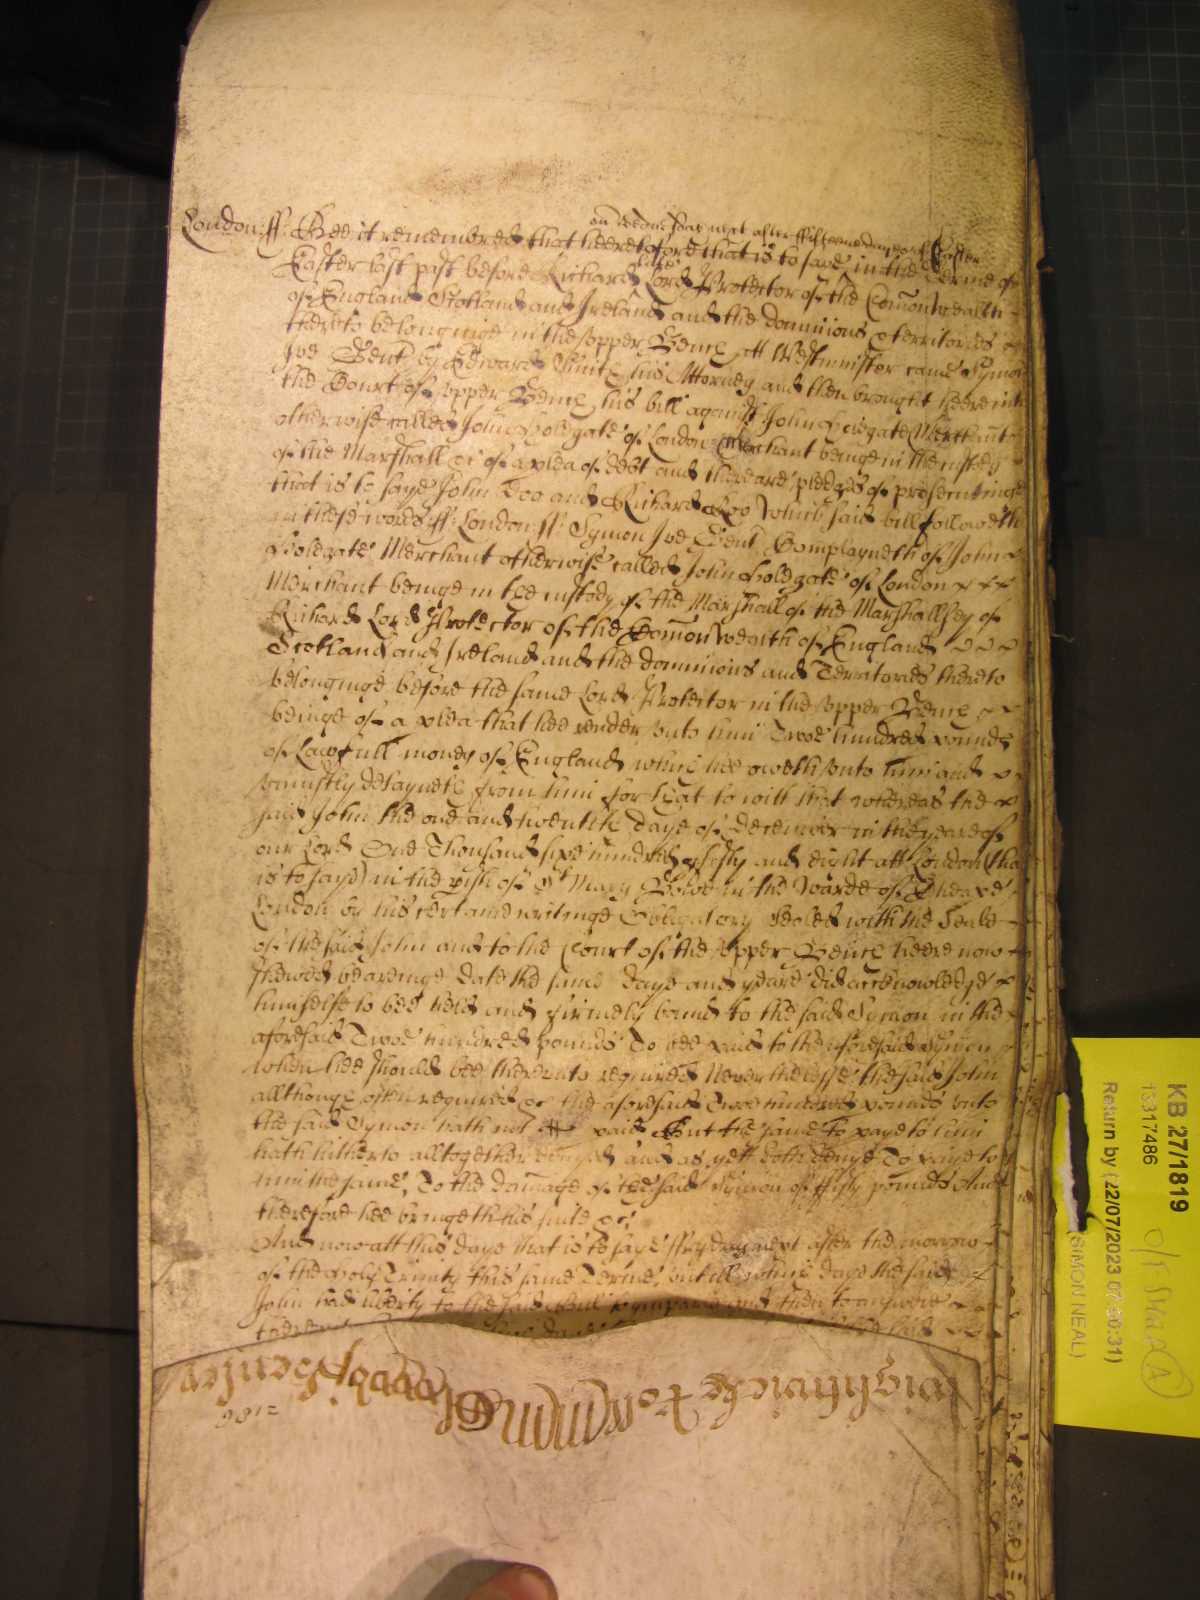 on Wednesday next after ffifteene dayes of Easter
London: ff: Bee it remembred that heeretofore that is to saye in the Terme of
Easter last past before Richard late Lord Protector of the Comon Wealth
of England Scotland and Ireland and the dominions & territories
thereto belonginge in the upper Bench att Westminster came Symon
Ive Gent by Edward his Attorney and then brought heere into
the Court of upper Bench his bill against John Holdgate Merchant
otherwise called John Holdgate of London Merchant beinge in the custody
of the Marshall &c of a plea of debt and there are pledges of prosecutinge
that is to saye John Doo and Richard Roo which said bill followeth
in these words ff: London: ff: Symon Ive Gent Complayneth of John
Holdgate Merchant otherwise called John Holdgate of London
Merchant beinge in the custody of the Marshall of the Marshallsey of
Richard Lord Protector of the Comon Wealth of England
Scotland and Ireland and the dominions and Territories thereto
belonginge before the same Lord Protector in the upper Bench
beinge of a plea that hee render unto him Twoe hundred pounds
of Lawfull money of England which hee oweth unto him and
uniustly detayneth from him for that to witt that whereas the
said John the one and twentith daye of December in the yeare of
our Lord One Thousand sixe hundred fifty and eight att London (that
is to saye) in the pish of St Mary Bowe in the Warde of Cheape
London by his certaine writinge Obligatory Sealed with the Seale
of the said John and to the Court of the upper Bench heere now
shewed beareinge date the same daye and yeare did acknowledge
himselfe to bee held and firmely bound to the said Symon in the
aforesaid Twoe hundred pounds To bee paid to the aforesaid Symon
when hee should bee thereunto required Neverthelesse the said John
although often required &c the aforesaid Twoe hundred pounds unto
the said Symon hath not paid But the same to paye to him
hath hitherto alltogether denyed and as yett doth denye To paye to
him the same, To the damage of the said Symon of ffifty pounds And
therefore hee bringeth his suite &c
And now att this daye that is to saye ffryday next after the morrow
of the Holy Trinity this same Terme, untill which daye the said
John had liberty to the said Bill to imparle and then to answere
KB 27/1819
13317486
Return by (22/07/2023 07:00:31)
(SIMON NEAL)
A